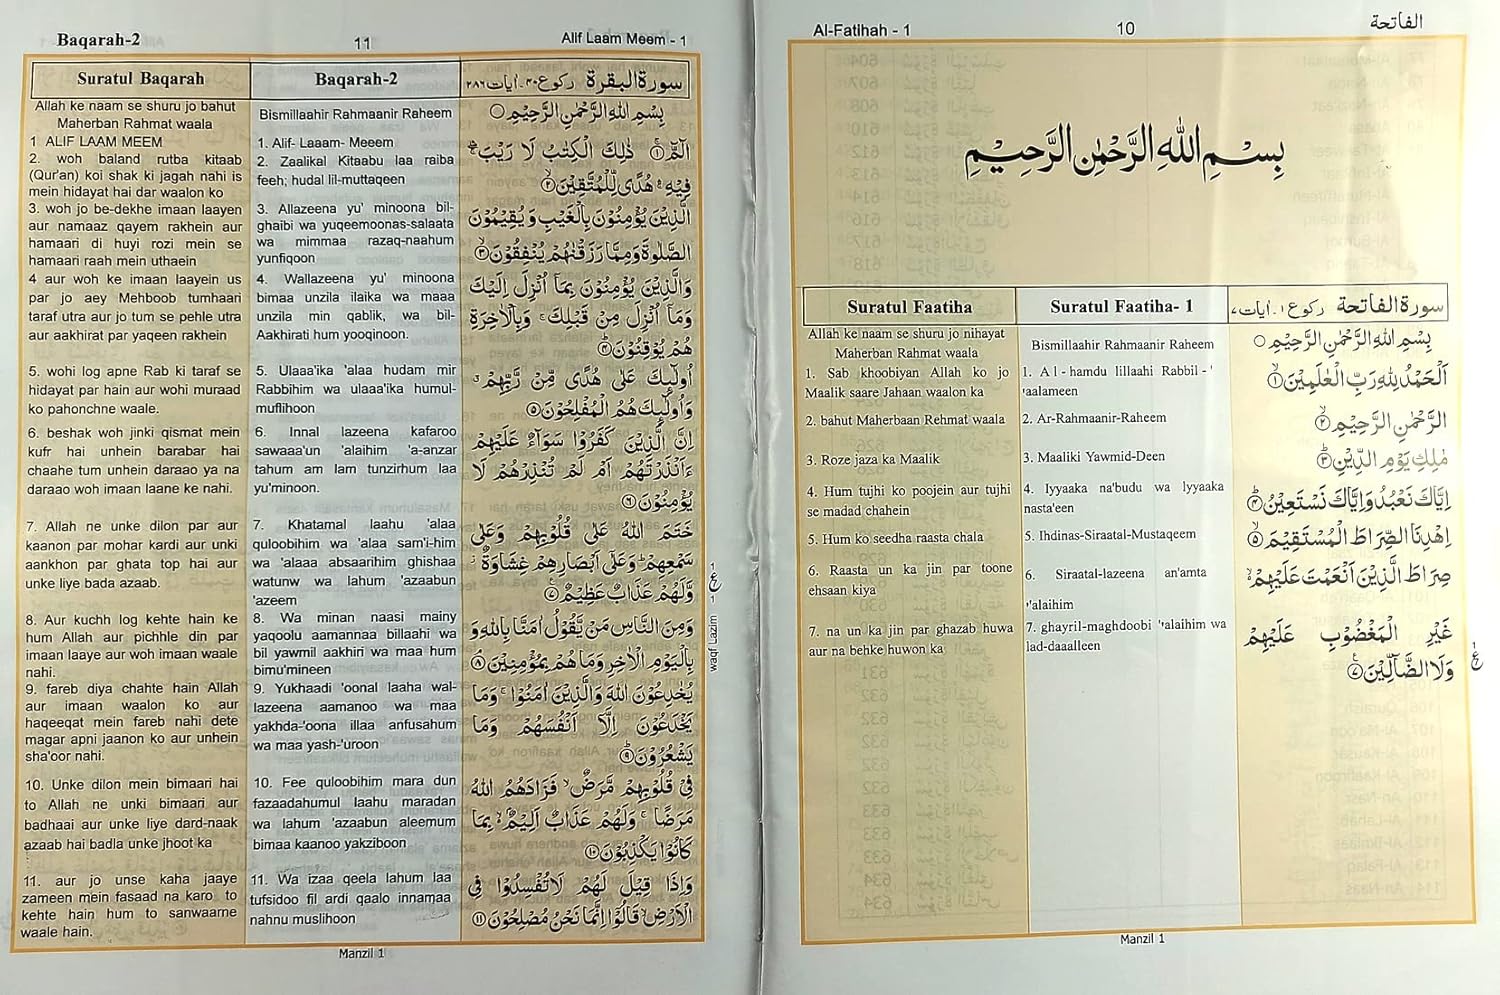 Al-Fatihah - 1
10
الفاتحة
بِسْمِ اللهِ الرَّحْمٰنِ الرَّحِيْمِ
Suratul Faatiha
Suratul Faatiha- 1
سورة الفاتحة رکوع ۱۔ اٰیات ۷
Allah ke naam se shuru jo nihayat
Maherban Rahmat waala
1. Sab khoobiyan Allah ko jo
Maalik saare Jahaan waalon ka
2. bahut Maherbaan Rehmat waala
3. Roze jaza ka Maalik
4. Hum tujhi ko poojein aur tujhi
se madad chahein
5. Hum ko seedha raasta chala
6. Raasta un ka jin par toone
ehsaan kiya
7. na un ka jin par ghazab huwa
aur na behke huwon ka
Bismillaahir Rahmaanir Raheem
1. Al-hamdu lillaahi Rabbil-'
'aalameen
2. Ar-Rahmaanir-Raheem
3. Maaliki Yawmid-Deen
4. Iyyaaka na'budu wa Iyyaaka
nasta'een
5. Ihdinas-Siraatal-Mustaqeem
6. Siraatal-lazeena an'amta
'alaihim
7. ghayril-maghdoobi 'alaihim wa
lad-daaalleen
بِسْمِ اللهِ الرَّحْمٰنِ الرَّحِيْمِ ○
اَلْحَمْدُ لِلّٰهِ رَبِّ الْعٰلَمِيْنَ ۙ﴿۱﴾
الرَّحْمٰنِ الرَّحِيْمِ ۙ﴿۲﴾
مٰلِكِ يَوْمِ الدِّيْنِ ؕ﴿۳﴾
اِيَّاكَ نَعْبُدُ وَ اِيَّاكَ نَسْتَعِيْنُ ؕ﴿۴﴾
اِهْدِنَا الصِّرَاطَ الْمُسْتَقِيْمَ ۙ﴿۵﴾
صِرَاطَ الَّذِيْنَ اَنْعَمْتَ عَلَيْهِمْ ۙ۬
غَيْرِ الْمَغْضُوْبِ عَلَيْهِمْ
وَلَا الضَّآلِّيْنَ ﴿۷﴾
Manzil 1
Baqarah-2
11
Alif Laam Meem - 1
Suratul Baqarah
Baqarah-2
سورة البقرة رکوع ۴۰۔ اٰیات ۲۸۶
Allah ke naam se shuru jo bahut
Maherban Rahmat waala
1 ALIF LAAM MEEM
2. woh baland rutba kitaab
(Qur'an) koi shak ki jagah nahi is
mein hidayat hai dar waalon ko
3. woh jo be-dekhe imaan laayen
aur namaaz qayem rakhein aur
hamaari di huyi rozi mein se
hamaari raah mein uthaein
4 aur woh ke imaan laayein us
par jo aey Mehboob tumhaari
taraf utra aur jo tum se pehle utra
aur aakhirat par yaqeen rakhein
5. wohi log apne Rab ki taraf se
hidayat par hain aur wohi muraad
ko pahonchne waale.
6. beshak woh jinki qismat mein
kufr hai unhein barabar hai
chaahe tum unhein daraao ya na
daraao woh imaan laane ke nahi.
7. Allah ne unke dilon par aur
kaanon par mohar kardi aur unki
aankhon par ghata top hai aur
unke liye bada azaab.
8. Aur kuchh log kehte hain ke
hum Allah aur pichhle din par
imaan laaye aur woh imaan waale
nahi.
9. fareb diya chahte hain Allah
aur imaan waalon ko aur
haqeeqat mein fareb nahi dete
magar apni jaanon ko aur unhein
sha'oor nahi.
10. Unke dilon mein bimaari hai
to Allah ne unki bimaari aur
badhaai aur unke liye dard-naak
azaab hai badla unke jhoot ka
11. aur jo unse kaha jaaye
zameen mein fasaad na karo to
kehte hain hum to sanwaarne
waale hain.
Bismillaahir Rahmaanir Raheem
1. Alif- Laaam- Meeem
2. Zaalikal Kitaabu laa raiba
feeh; hudal lil-muttaqeen
3. Allazeena yu' minoona bil-
ghaibi wa yuqeemoonas-salaata
wa mimmaa razaq-naahum
yunfiqoon
4. Wallazeena yu' minoona
bimaa unzila ilaika wa maaa
unzila min qablik, wa bil-
Aakhirati hum yooqinoon.
5. Ulaaa'ika 'alaa hudam mir
Rabbihim wa ulaaa'ika humul-
muflihoon
6. Innal lazeena kafaroo
sawaaa'un 'alaihim 'a-anzar
tahum am lam tunzirhum laa
yu'minoon.
7. Khatamal laahu 'alaa
quloobihim wa 'alaa sam'i-him
wa 'alaaa absaarihim ghishaa
watunw wa lahum 'azaabun
'azeem
8. Wa minan naasi mainy
yaqoolu aamannaa billaahi wa
bil yawmil aakhiri wa maa hum
bimu'mineen
9. Yukhaadi 'oonal laaha wal-
lazeena aamanoo wa maa
yakhda-'oona illaa anfusahum
wa maa yash-'uroon
10. Fee quloobihim mara dun
fazaadahumul laahu maradan
wa lahum 'azaabun aleemum
bimaa kaanoo yakziboon
11. Wa izaa qeela lahum laa
tufsidoo fil ardi qaalo innamaa
nahnu muslihoon
بِسْمِ اللهِ الرَّحْمٰنِ الرَّحِيْمِ ○
الٓمّٓ ۚ﴿۱﴾ ذٰلِكَ الْكِتٰبُ لَا رَيْبَ ۖۛۚ
فِيْهِ ۛۚ هُدًى لِّلْمُتَّقِيْنَ ۙ﴿۲﴾
الَّذِيْنَ يُؤْمِنُوْنَ بِالْغَيْبِ وَ يُقِيْمُوْنَ
الصَّلٰوةَ وَمِمَّا رَزَقْنٰهُمْ يُنْفِقُوْنَ ۙ﴿۳﴾
وَالَّذِيْنَ يُؤْمِنُوْنَ بِمَاۤ اُنْزِلَ اِلَيْكَ
وَمَاۤ اُنْزِلَ مِنْ قَبْلِكَ ۚ وَبِالْاٰخِرَةِ
هُمْ يُوْقِنُوْنَ ؕ﴿۴﴾
اُولٰٓئِكَ عَلٰى هُدًى مِّنْ رَّبِّهِمْ ۗ
وَاُولٰٓئِكَ هُمُ الْمُفْلِحُوْنَ ﴿۵﴾
اِنَّ الَّذِيْنَ كَفَرُوْا سَوَآءٌ عَلَيْهِمْ
ءَاَنْذَرْتَهُمْ اَمْ لَمْ تُنْذِرْهُمْ لَا
يُؤْمِنُوْنَ ﴿۶﴾
خَتَمَ اللهُ عَلٰى قُلُوْبِهِمْ وَعَلٰى
سَمْعِهِمْ ؕ وَعَلٰۤى اَبْصَارِهِمْ غِشَاوَةٌ ۫
وَّلَهُمْ عَذَابٌ عَظِيْمٌ ﴿۷﴾
وَمِنَ النَّاسِ مَنْ يَّقُوْلُ اٰمَنَّا بِاللهِ وَ
بِالْيَوْمِ الْاٰخِرِ وَمَا هُمْ بِمُؤْمِنِيْنَ ۘ﴿۸﴾
يُخٰدِعُوْنَ اللهَ وَالَّذِيْنَ اٰمَنُوْا ۚ وَمَا
يَخْدَعُوْنَ اِلَّاۤ اَنْفُسَهُمْ وَمَا
يَشْعُرُوْنَ ؕ﴿۹﴾
فِيْ قُلُوْبِهِمْ مَّرَضٌ ۙ فَزَادَهُمُ اللهُ
مَرَضًا ۚ وَلَهُمْ عَذَابٌ اَلِيْمٌ ۢ ۙ بِمَا
كَانُوْا يَكْذِبُوْنَ ﴿۱۰﴾
وَاِذَا قِيْلَ لَهُمْ لَا تُفْسِدُوْا فِي
الْاَرْضِ ۙ قَالُوْۤا اِنَّمَا نَحْنُ مُصْلِحُوْنَ ﴿۱۱﴾
waqf Lazim
Manzil 1